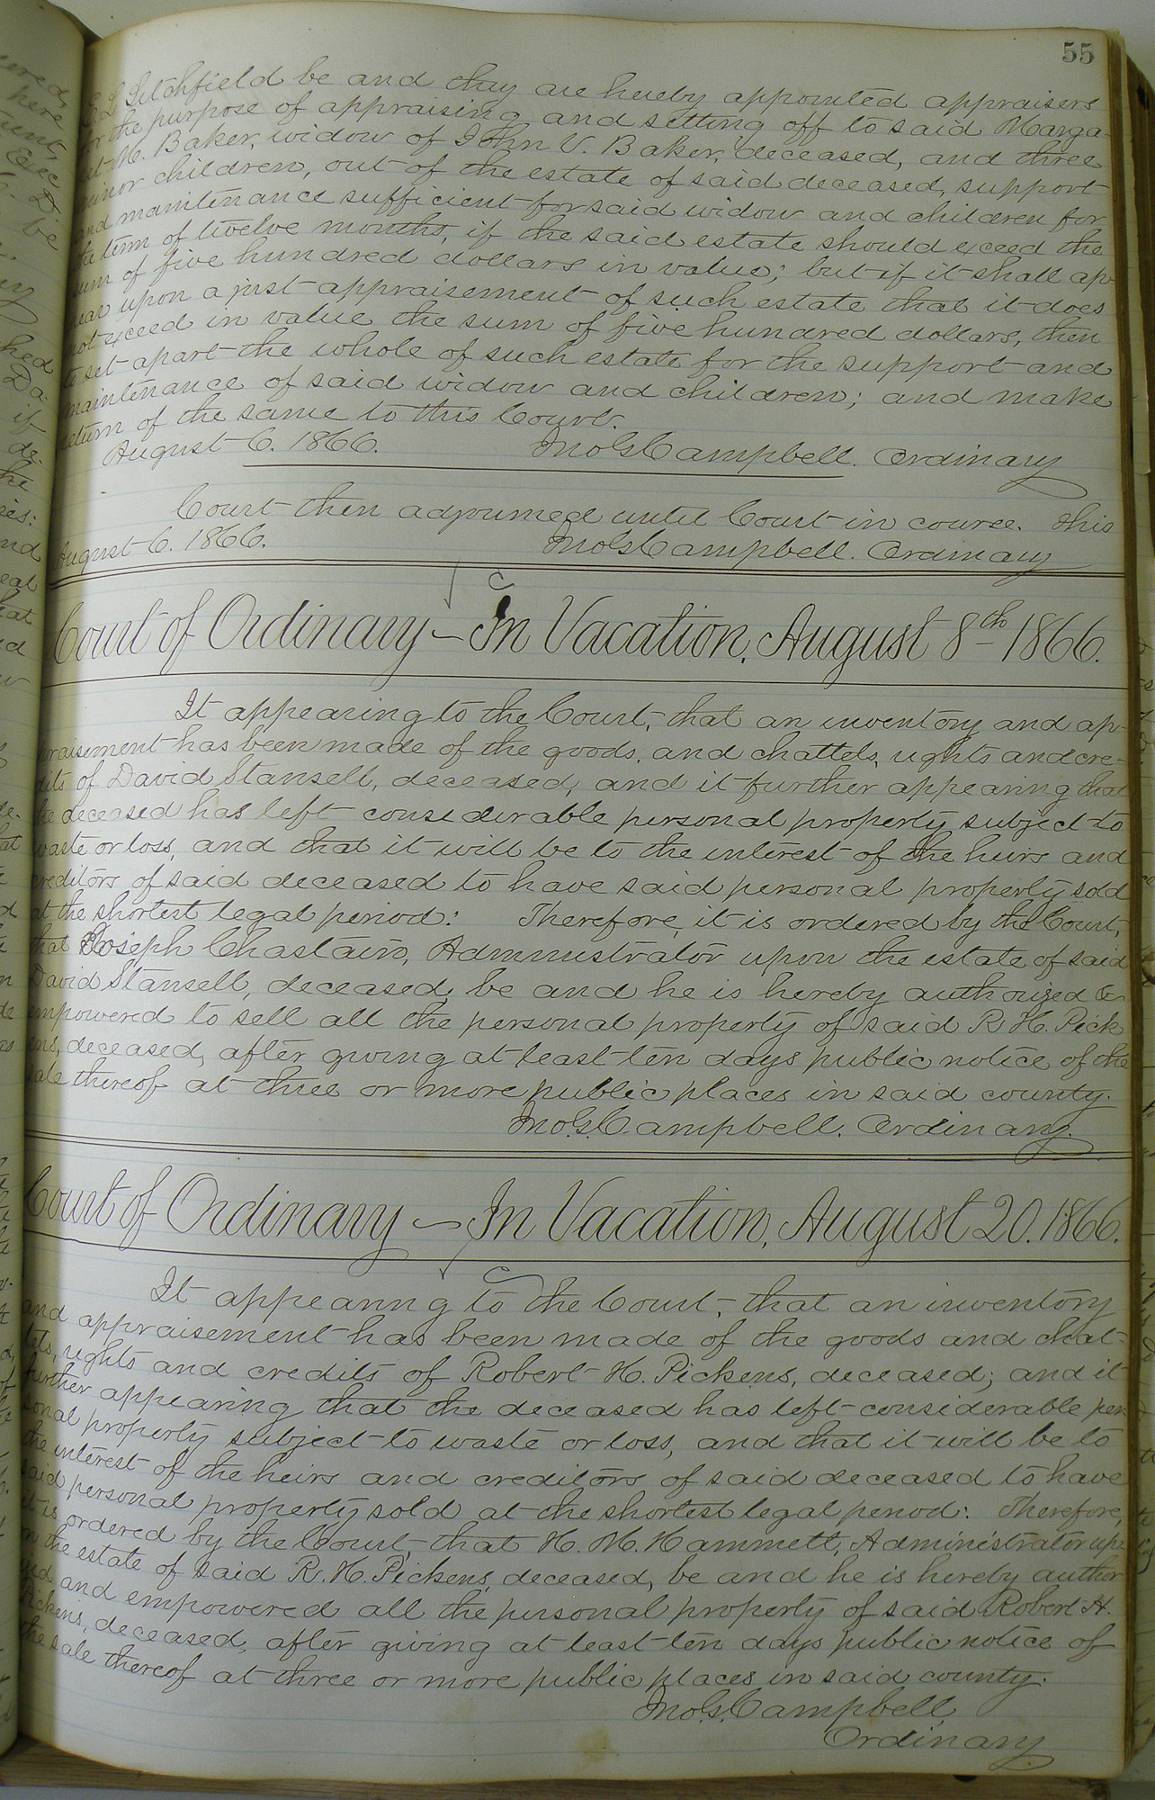 55
E. L. Litchfield be and they are hereby appointed appraisers
for the purpose of appraising and setting off to said Marga-
ret M. Baker, widow of John V. Baker, deceased, and three
minor children, out of the estate of said deceased, support
and maintenance sufficient for said widow and children for
the term of twelve months, if the said estate should exceed the
sum of five hundred dollars in value; but if it shall ap-
pear upon a just appraisement of such estate that it does
not exceed in value the sum of five hundred dollars, then
to set apart the whole of such estate for the support and
maintenance of said widow and children; and make
return of the same to this Court.
August 6. 1866. Jno. G. Campbell. Ordinary
Court then adjourned until Court in course. This
August 6. 1866. Jno. G. Campbell. Ordinary
Court of Ordinary – In Vacation, August 8th 1866.
It appearing to the Court, that an inventory and ap-
praisement has been made of the goods, and chattels, rights and cre-
dits of David Stansell, deceased, and it further appearing that
the deceased has left considerable personal property subject to
waste or loss, and that it will be to the interest of the heirs and
creditors of said deceased to have said personal property sold
at the shortest legal period: Therefore, it is ordered by the Court,
that Joseph Chastain, Administrator upon the estate of said
David Stansell, deceased, be and he is hereby authorized &
empowered to sell all the personal property of said R. H. Pick
ens, deceased, after giving at least ten days public notice of the
sale thereof at three or more public places in said county.
Jno. G. Campbell. Ordinary.
Court of Ordinary – In Vacation, August 20. 1866.
It appearing to the Court, that an inventory
and appraisement has been made of the goods and chat-
tels, rights and credits of Robert H. Pickens, deceased; and it
further appearing that the deceased has left considerable per
sonal property subject to waste or loss, and that it will be to
the interest of the heirs and creditors of said deceased to have
said personal property sold at the shortest legal period: Therefore,
it is ordered by the Court, that H. M. Hammett, Administrator up
on the estate of said R. H. Pickens, deceased, be and he is hereby author
ized and empowered all the personal property of said Robert H.
Pickens, deceased, after giving at least ten days public notice of
the sale thereof at three or more public places in said county.
Jno. G. Campbell
Ordinary.